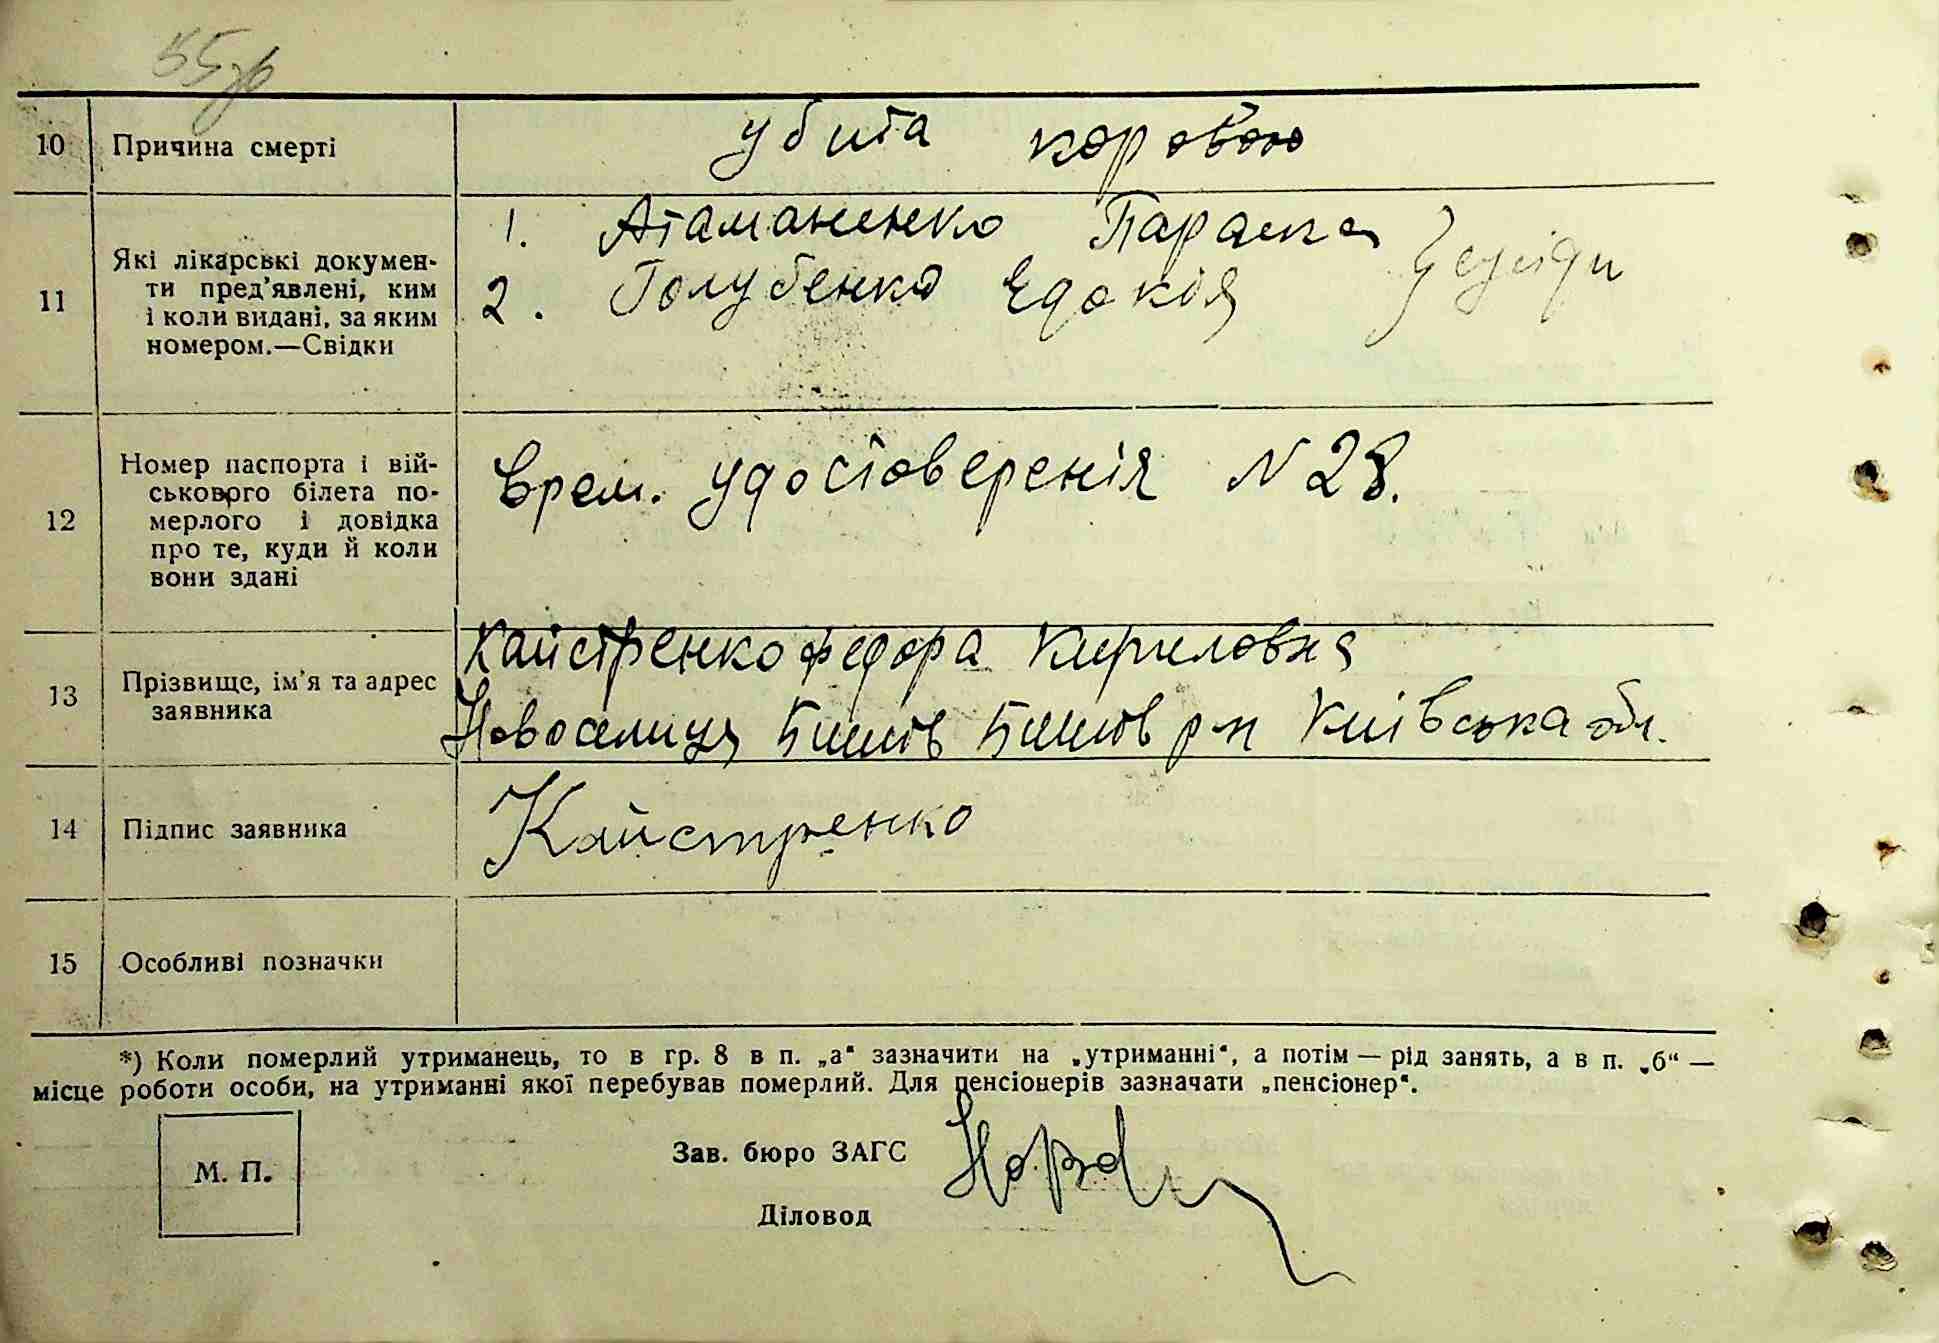 10 Причина смерті убита коровою
11 Які лікарські докумен-
ти пред'явлені, ким
і коли видані, за яким
номером.—Свідки
1. Атаманенко Параска
2. Голубенко Едокія
12 Номер паспорта і вій-
ськового білета по-
мерлого і довідка
про те, куди й коли
вони здані
Врем. удостоверенія N 28.
13 Прізвище, ім'я та адрес
заявника
Кайстренко Федора Кириловна
Новоселиця Бишів Бишов р-н Київська обл.
14 Підпис заявника Кайстренко
15 Особливі позначки
*) Коли померлий утриманець, то в гр. 8 в п. „а" зазначити на „утриманні", а потім — рід занять, а в п. „б" —
місце роботи особи, на утриманні якої перебував померлий. Для пенсіонерів зазначати „пенсіонер".
М. П.
Зав. бюро ЗАГС
Діловод